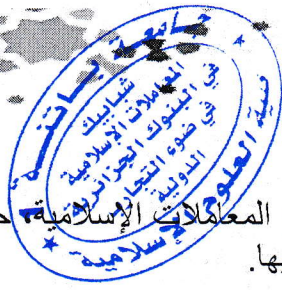 جامعة باتنة
كلية العلوم الإسلامية
شبابيك
المعاملات الإسلامية
في البنوك الجزائرية
في ضوء التجارب
الدولية
المعاملات الإسلامية،
يها.